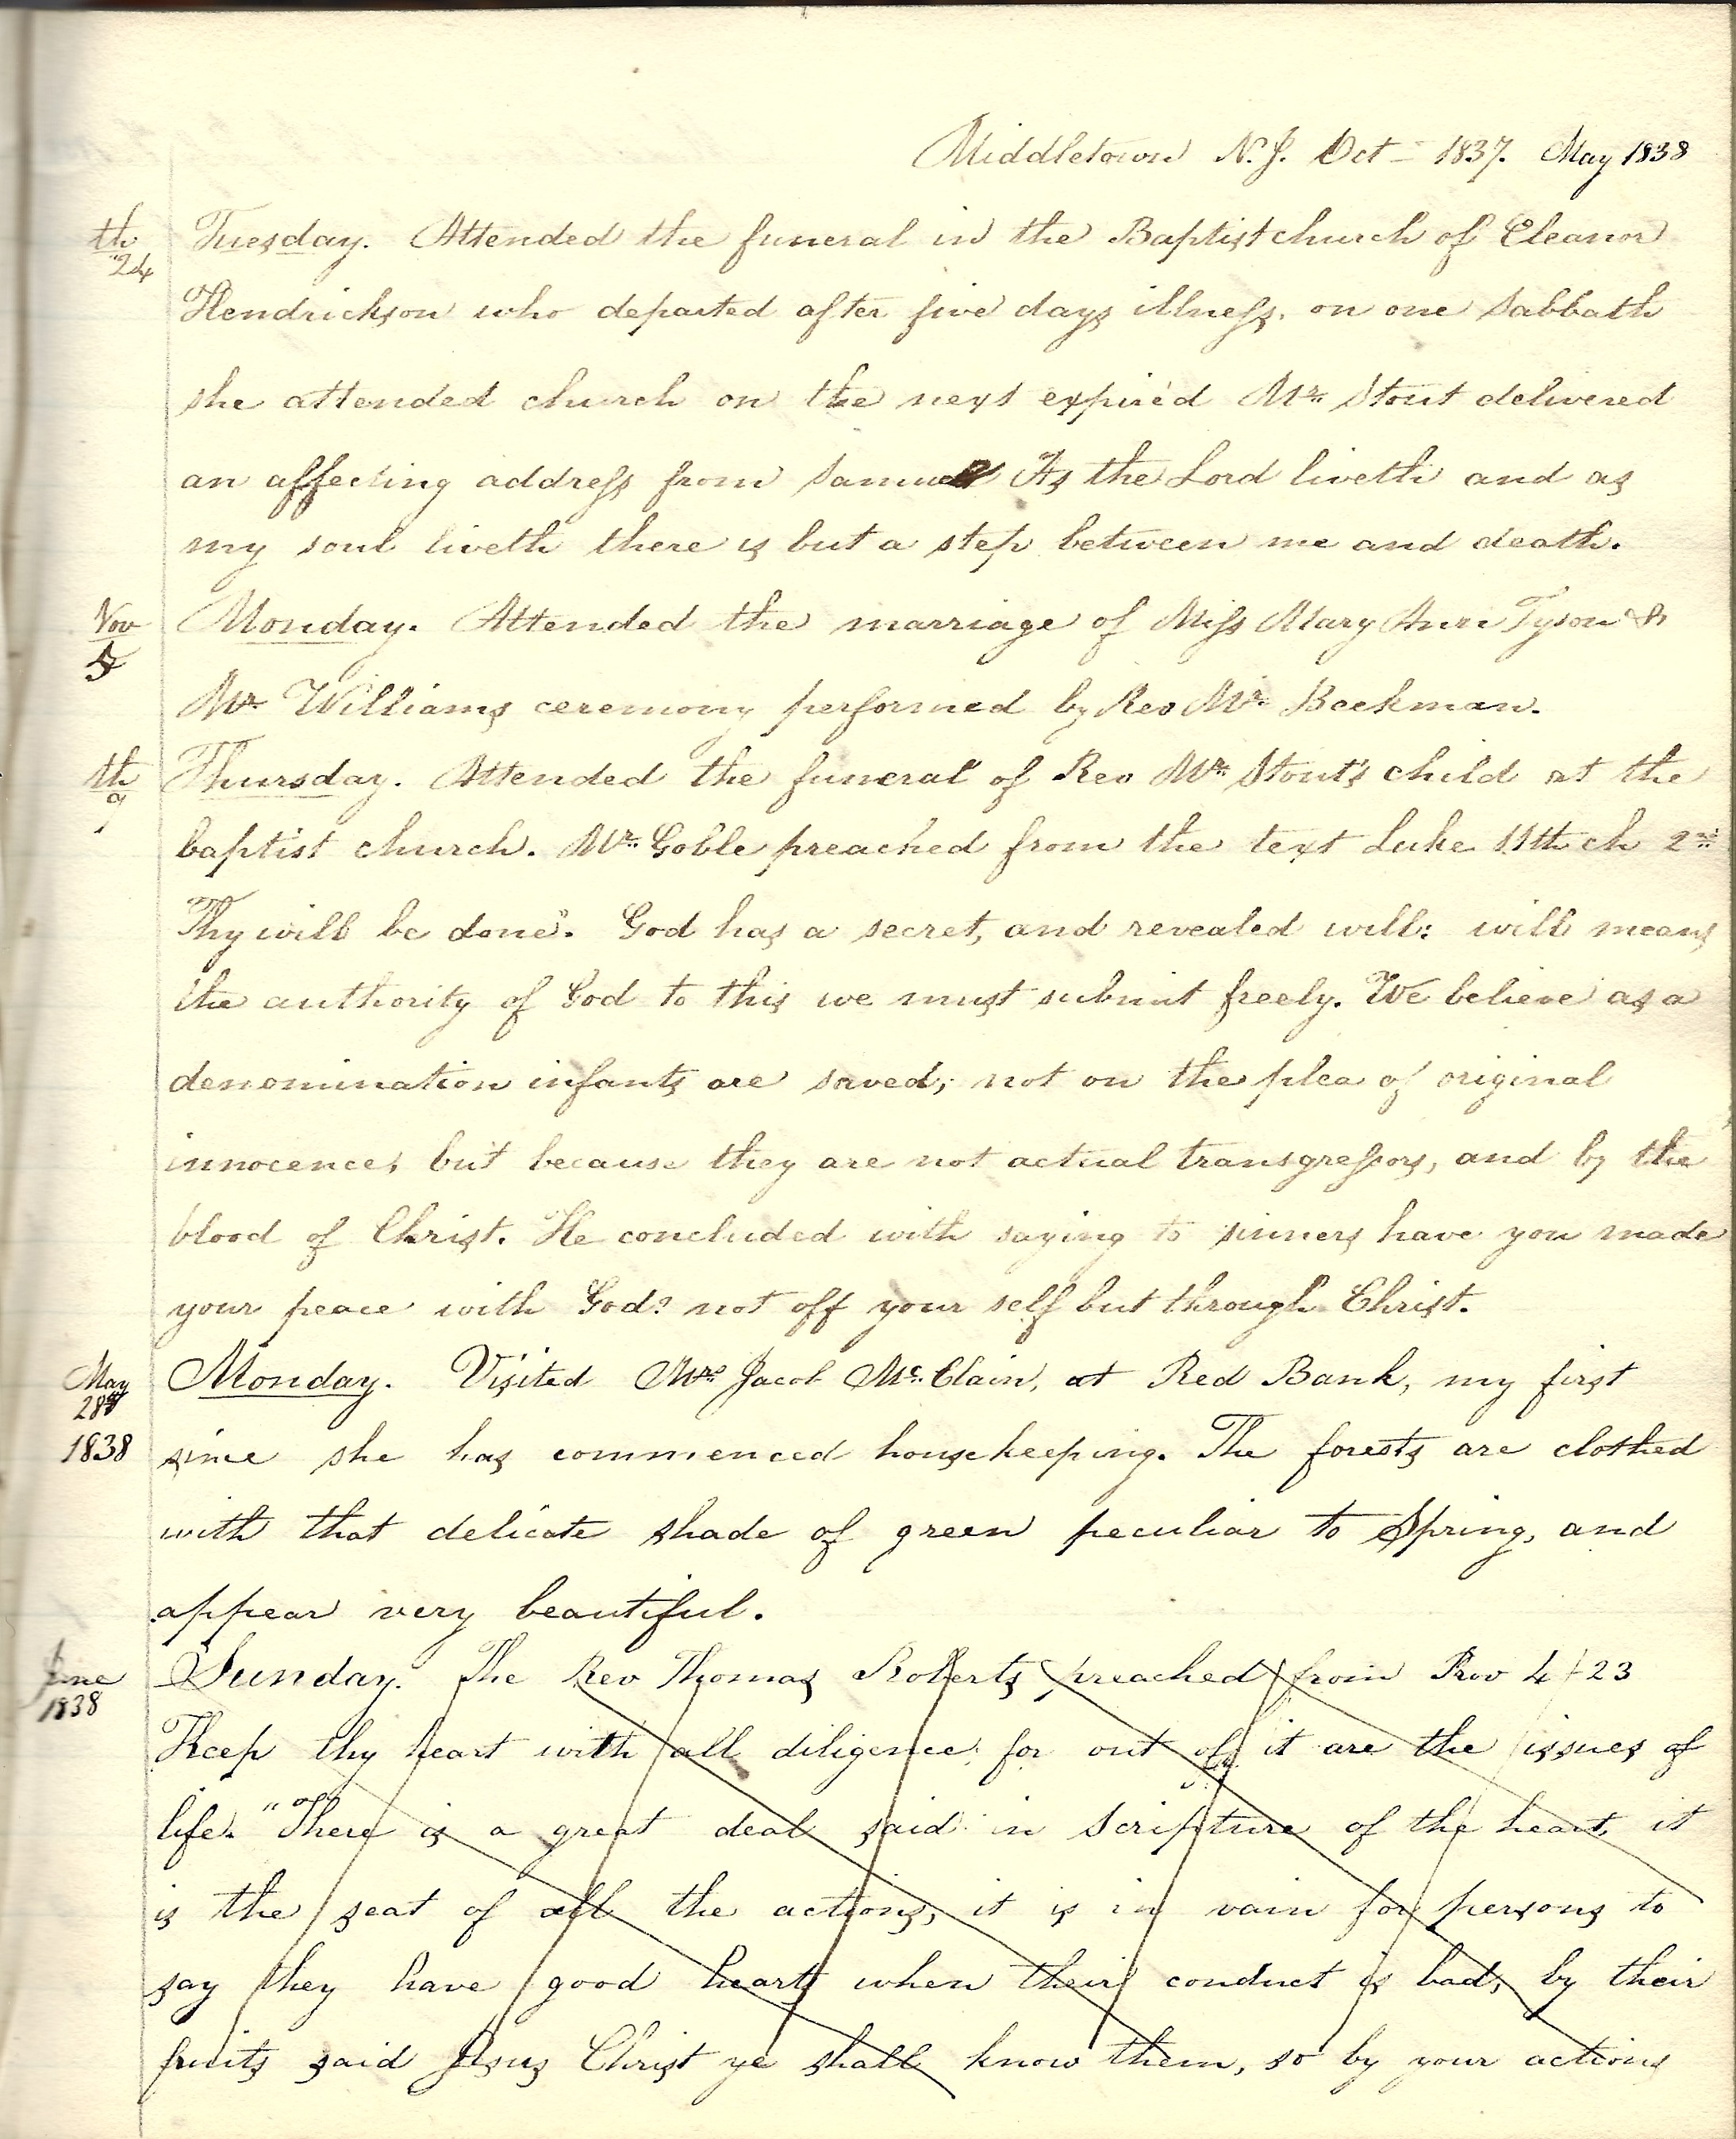 Middletown N.J. Oct - 1837. May 1838
th 24 Tuesday. Attended the funeral in the Baptist church of Eleanor
Hendrickson who departed after five days illness, on one Sabbath
she attended church on the next expired Mr. Stout delivered
an affecting address from Samuel As the Lord liveth and as
my soul liveth there is but a step between me and death.
Nov 5 Monday. Attended the marriage of Miss Mary Ann Tyson &
Mr Williams ceremony performed by Rev Mr. Beekman.
th 9 Thursday. Attended the funeral of Rev Mr. Stout's child at the
baptist church. Mr. Goble preached from the text Luke 11th ch 2nd
"Thy will be done". God has a secret, and revealed will: will means
the authority of God to this we must submit freely. We believe as a
denomination infants are saved; not on the plea of original
innocence, but because they are not actual transgressors, and by the
blood of Christ. He concluded with saying to sinners have you made
your peace with God? not off your self but through Christ.
May 28 1838 Monday. Visited Mrs Jacob Mc. Clain, at Red Bank, my first
since she has commenced housekeeping. The forests are clothed
with that delicate shade of green peculiar to Spring, and
appear very beautiful.
June 1838 Sunday. The Rev Thomas Roberts preached from Prov 4 + 23
Keep thy heart with all diligence for out of it are the issues of
life. "There is a great deal said in Scripture of the heart, it
is the seat of all the actions, it is in vain for persons to
say they have good hearts when their conduct is bad, by their
fruits said Jesus Christ ye shall know them, so by your actions